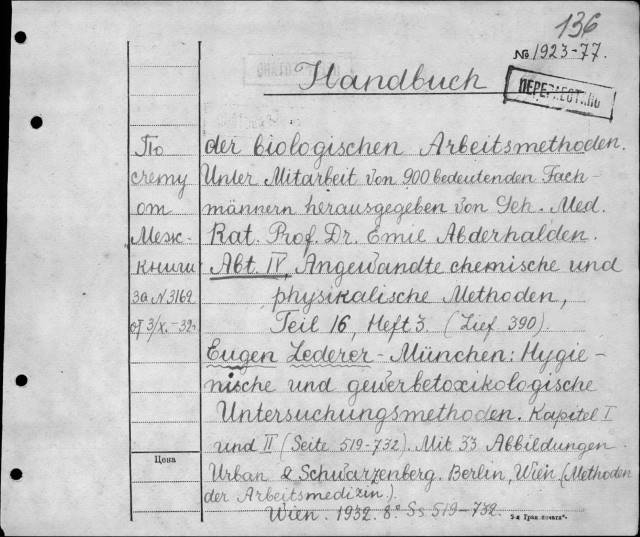 136
№ 1923-77.
Handbuch
der biologischen Arbeitsmethoden.
Unter Mitarbeit von 900 bedeutenden Fach-
männern herausgegeben von Geh. Med.
Rat. Prof. Dr. Emil Abderhalden.
Abt. IV, Angewandte chemische und
physikalische Methoden,
Teil 16, Heft 3. (Lief 390).
Eugen Lederer - München: Hygie-
nische und gewerbetoxikologische
Untersuchungsmethoden. Kapitel I
und II (Seite 519-732). Mit 33 Abbildungen.
Urban & Schwarzenberg. Berlin, Wien (Methoden
der Arbeitsmedizin).
Wien. 1932. 8° Ss 519-732.
По
счету
от
Меж-
книги
за № 3162
от 3/X.-32г.
Цена